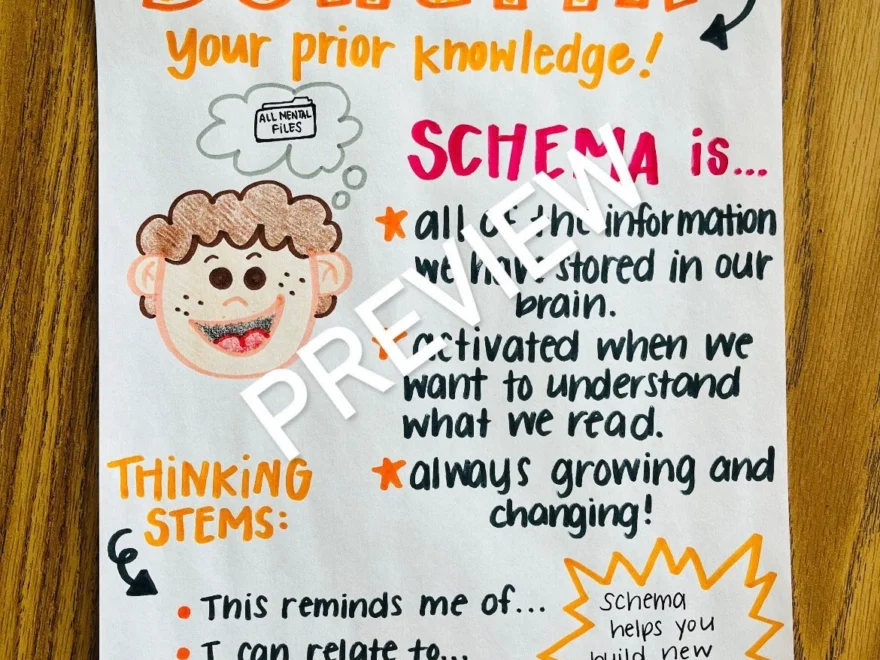 SCHEMA
your prior knowledge!
ALL MENTAL
FILES
SCHEMA is...
all of the information
we have stored in our
brain.
activated when we
want to understand
what we read.
always growing and
changing!
PREVIEW
THINKING
STEMS:
This reminds me of...
I can relate to...
schema
helps you
build new